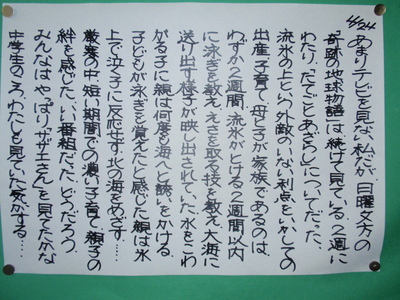 4/24
あまりテレビを見ない私だが、日曜夕方の
「奇跡の地球物語」は続けて見ている。2週に
わたり、「たてごとあざらし」についてだった。
流氷の上という外敵のいない利点をいかしての
出産、子育て、母と子が家族であるのは、
わずか2週間。流氷がとける2週間以内
に泳ぎを教え、えさを取る技を教え、大海に
送り出す様子が映し出されていた。水をこわ
がる子に親は何度も海へと誘いをかける。
子どもが泳ぎを覚えたと感じた親は氷
上で泣く子に反応せず、北の海をめざす……。
厳寒の中、短い期間での濃い子育て、親子の
絆を感じた。いい番組だった。どうだろう。
みんなはやっぱり「サザエさん」を見てたかな
中学生のころわたしも見ていた気がする…。